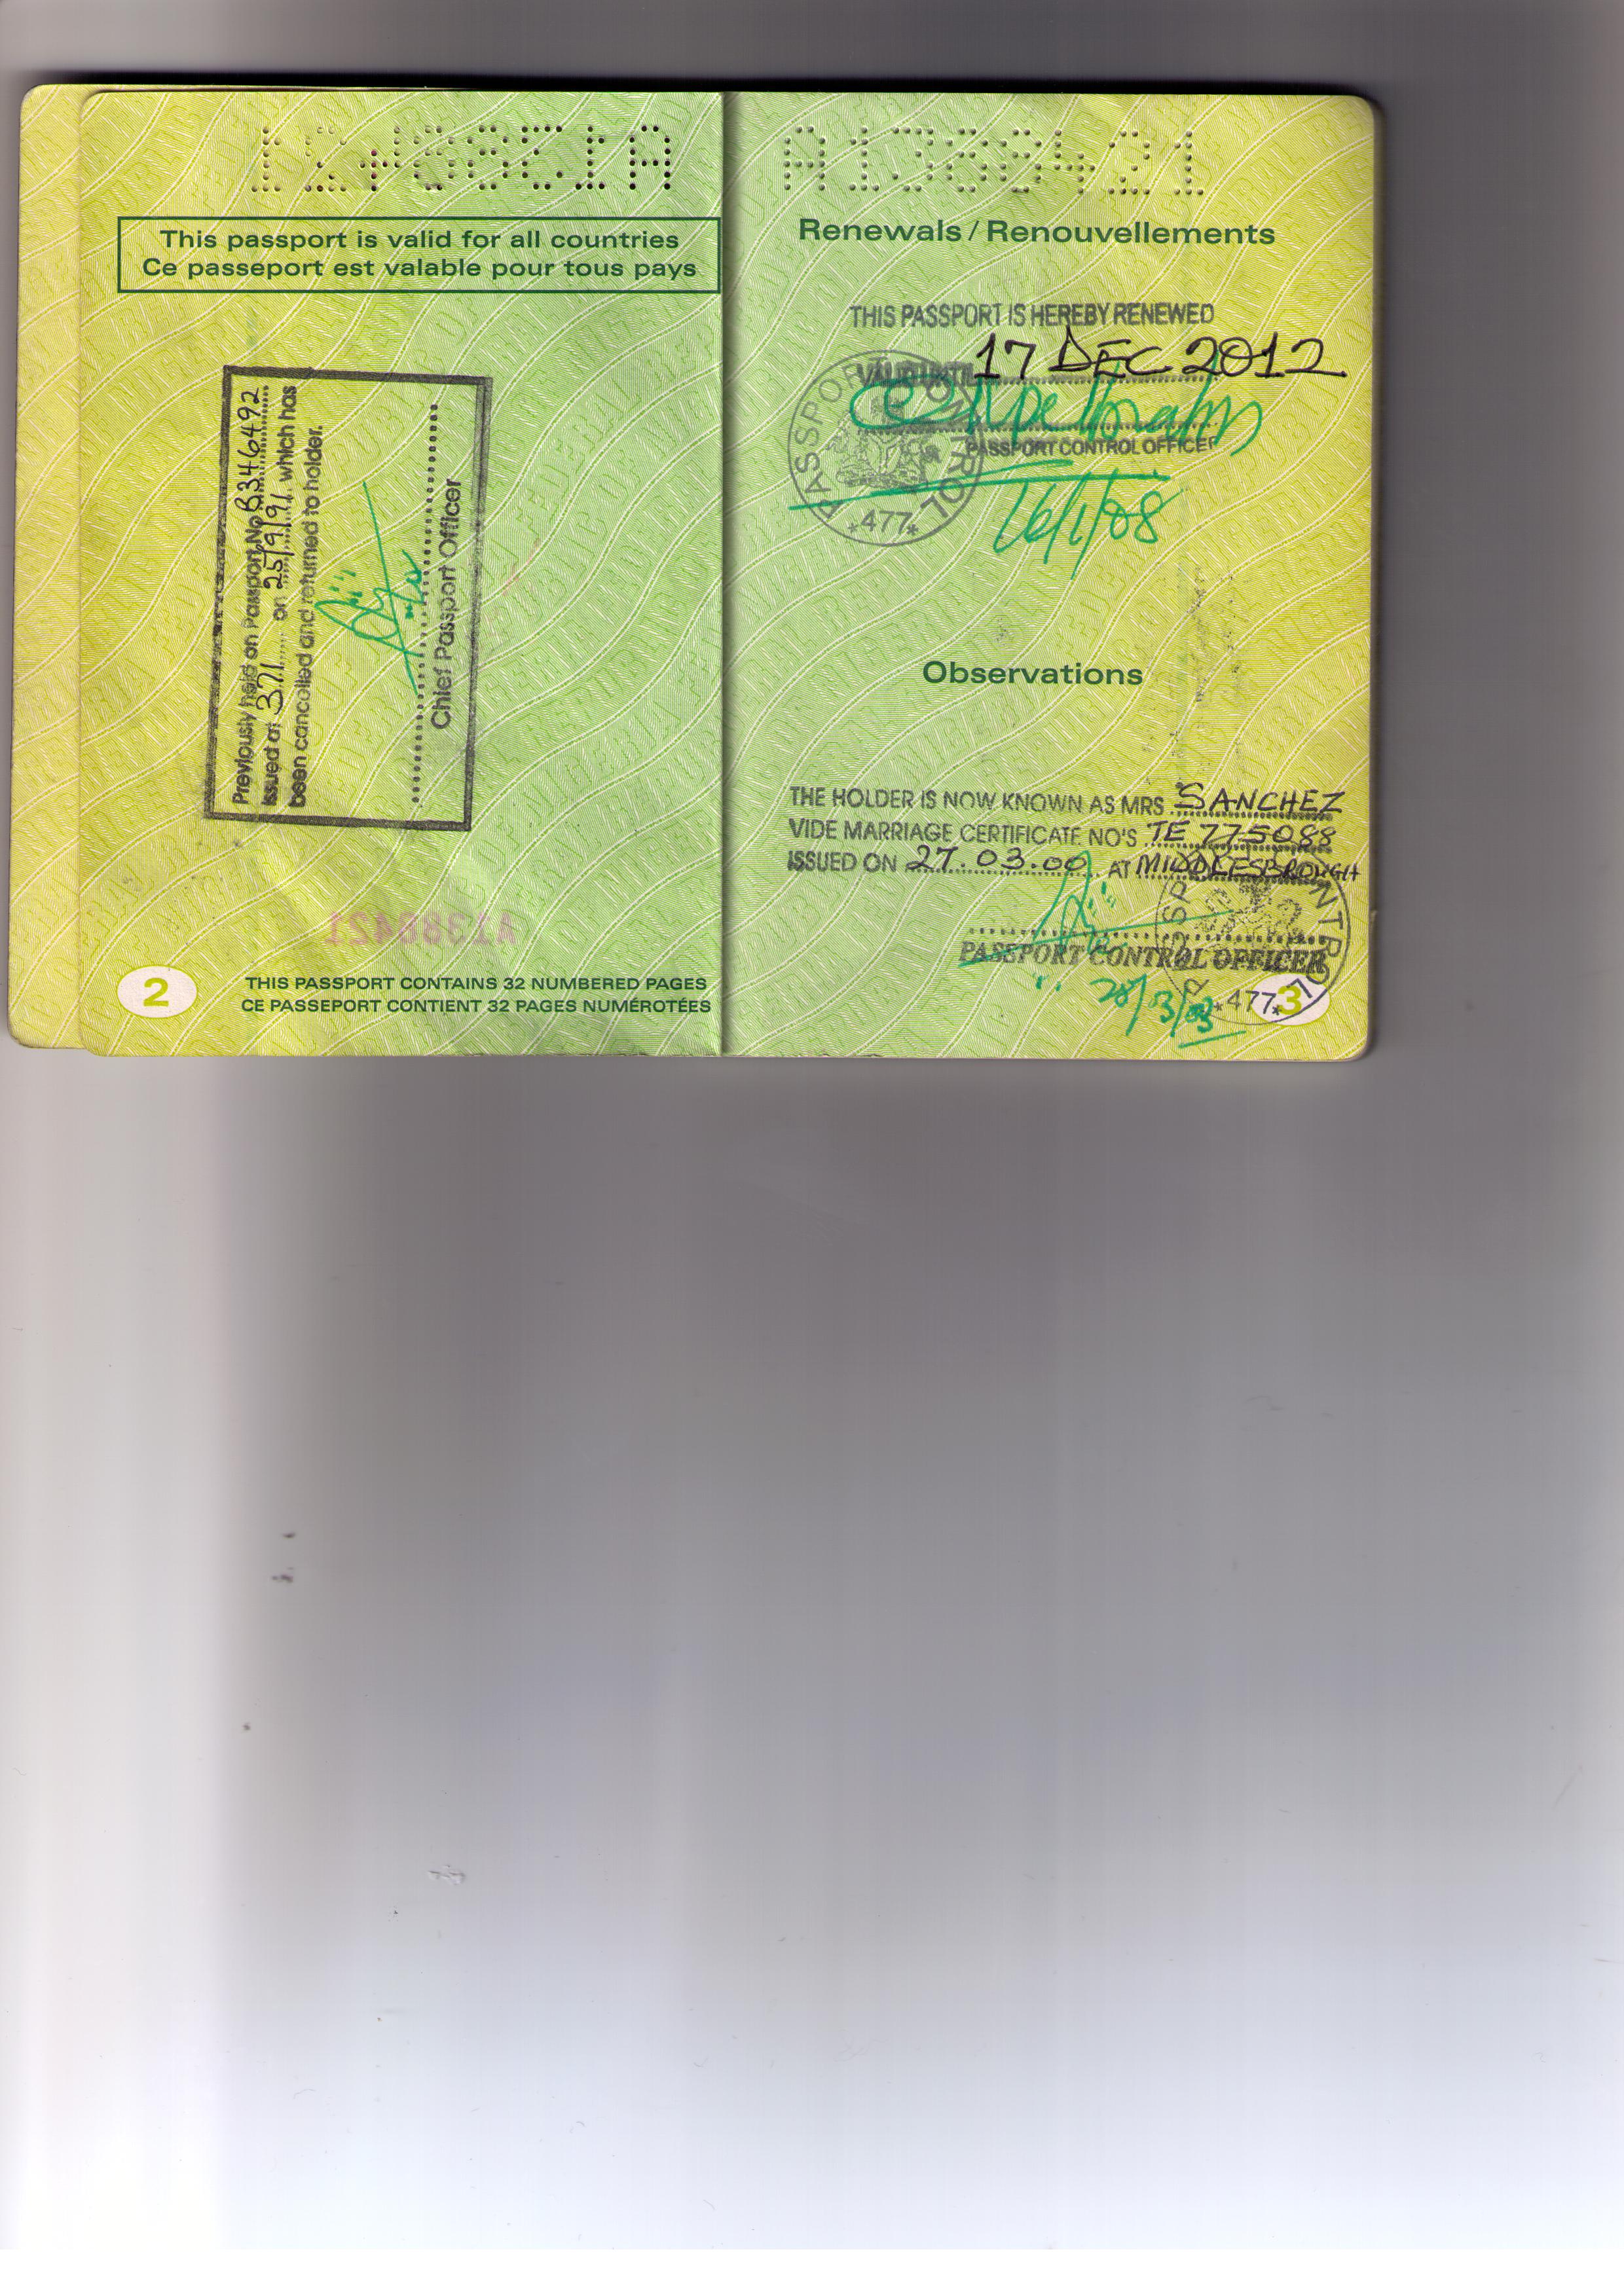 This passport is valid for all countries
Ce passeport est valable pour tous pays
Previously held on Passport No B3464492
issued at 371 on 25/9/91 which has
been cancelled and returned to holder.
Chief Passport Officer
2
THIS PASSPORT CONTAINS 32 NUMBERED PAGES
CE PASSEPORT CONTIENT 32 PAGES NUMÉROTÉES
Renewals / Renouvellements
THIS PASSPORT IS HEREBY RENEWED
VALID UNTIL 17 DEC 2012
PASSPORT CONTROL OFFICER
PASSPORT CONTROL
*477*
16/1/08
Observations
THE HOLDER IS NOW KNOWN AS MRS SANCHEZ
VIDE MARRIAGE CERTIFICATE NO'S TE 775088
ISSUED ON 27.03.00 AT MIDDLESBROUGH
PASSPORT CONTROL OFFICER
*477*
3